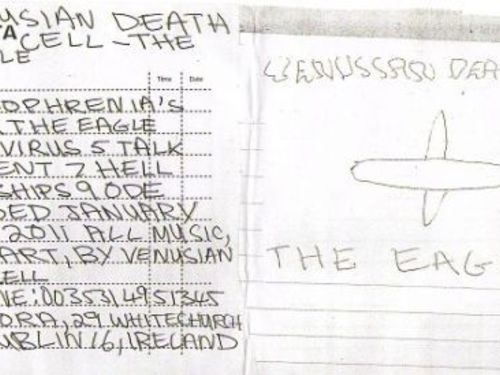 USIAN DEATH
CELL - THE
LE
Time Date
DPHRENIA'S
. THE EAGLE
VIRUS 5 TALK
ENT 7 HELL
SHIPS 9 ODE
DED JANUARY
2011 ALL MUSIC,
ART, BY VENUSIAN
CELL
NE: 0035314951345
ORA, 29 WHITECHURCH
UBLIN 16, IRELAND
VENUSSIAN DEA
THE EAG